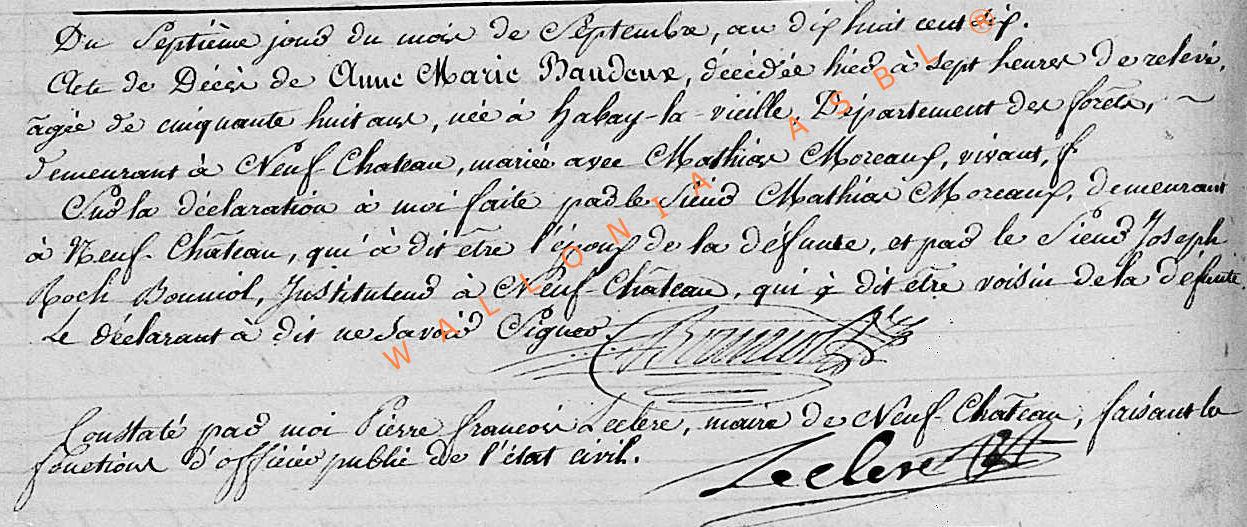 Du Septième jour du mois de Septembre, an dix huit cent dix.
Acte de Décès de Anne Marie Baudoux, décédée hier à Sept heures de relevé,
âgée de cinquante huit ans, née à habay-la-vieille, Département des forêts, ~
demeurant à Neuf Chateau, mariée avec Mathias Moreaux, vivant,
Sur la déclaration à moi faite par le Sieur Mathias Moreaux, demeurant
à Neuf-Château, qui à dit être l'époux de la défunte, et par le Sieur Joseph
Roch Bonniol, Instituteur à Neuf-Château, qui à dit être voisin de la défunte.
Le déclarant à dit ne Savoir Signer.
Constaté par moi Pierre françois Leclere, maire de Neuf-Chateau, faisant les
fonctions d'officier public de l'état civil.
Leclere
WALLONIA ASBL ®